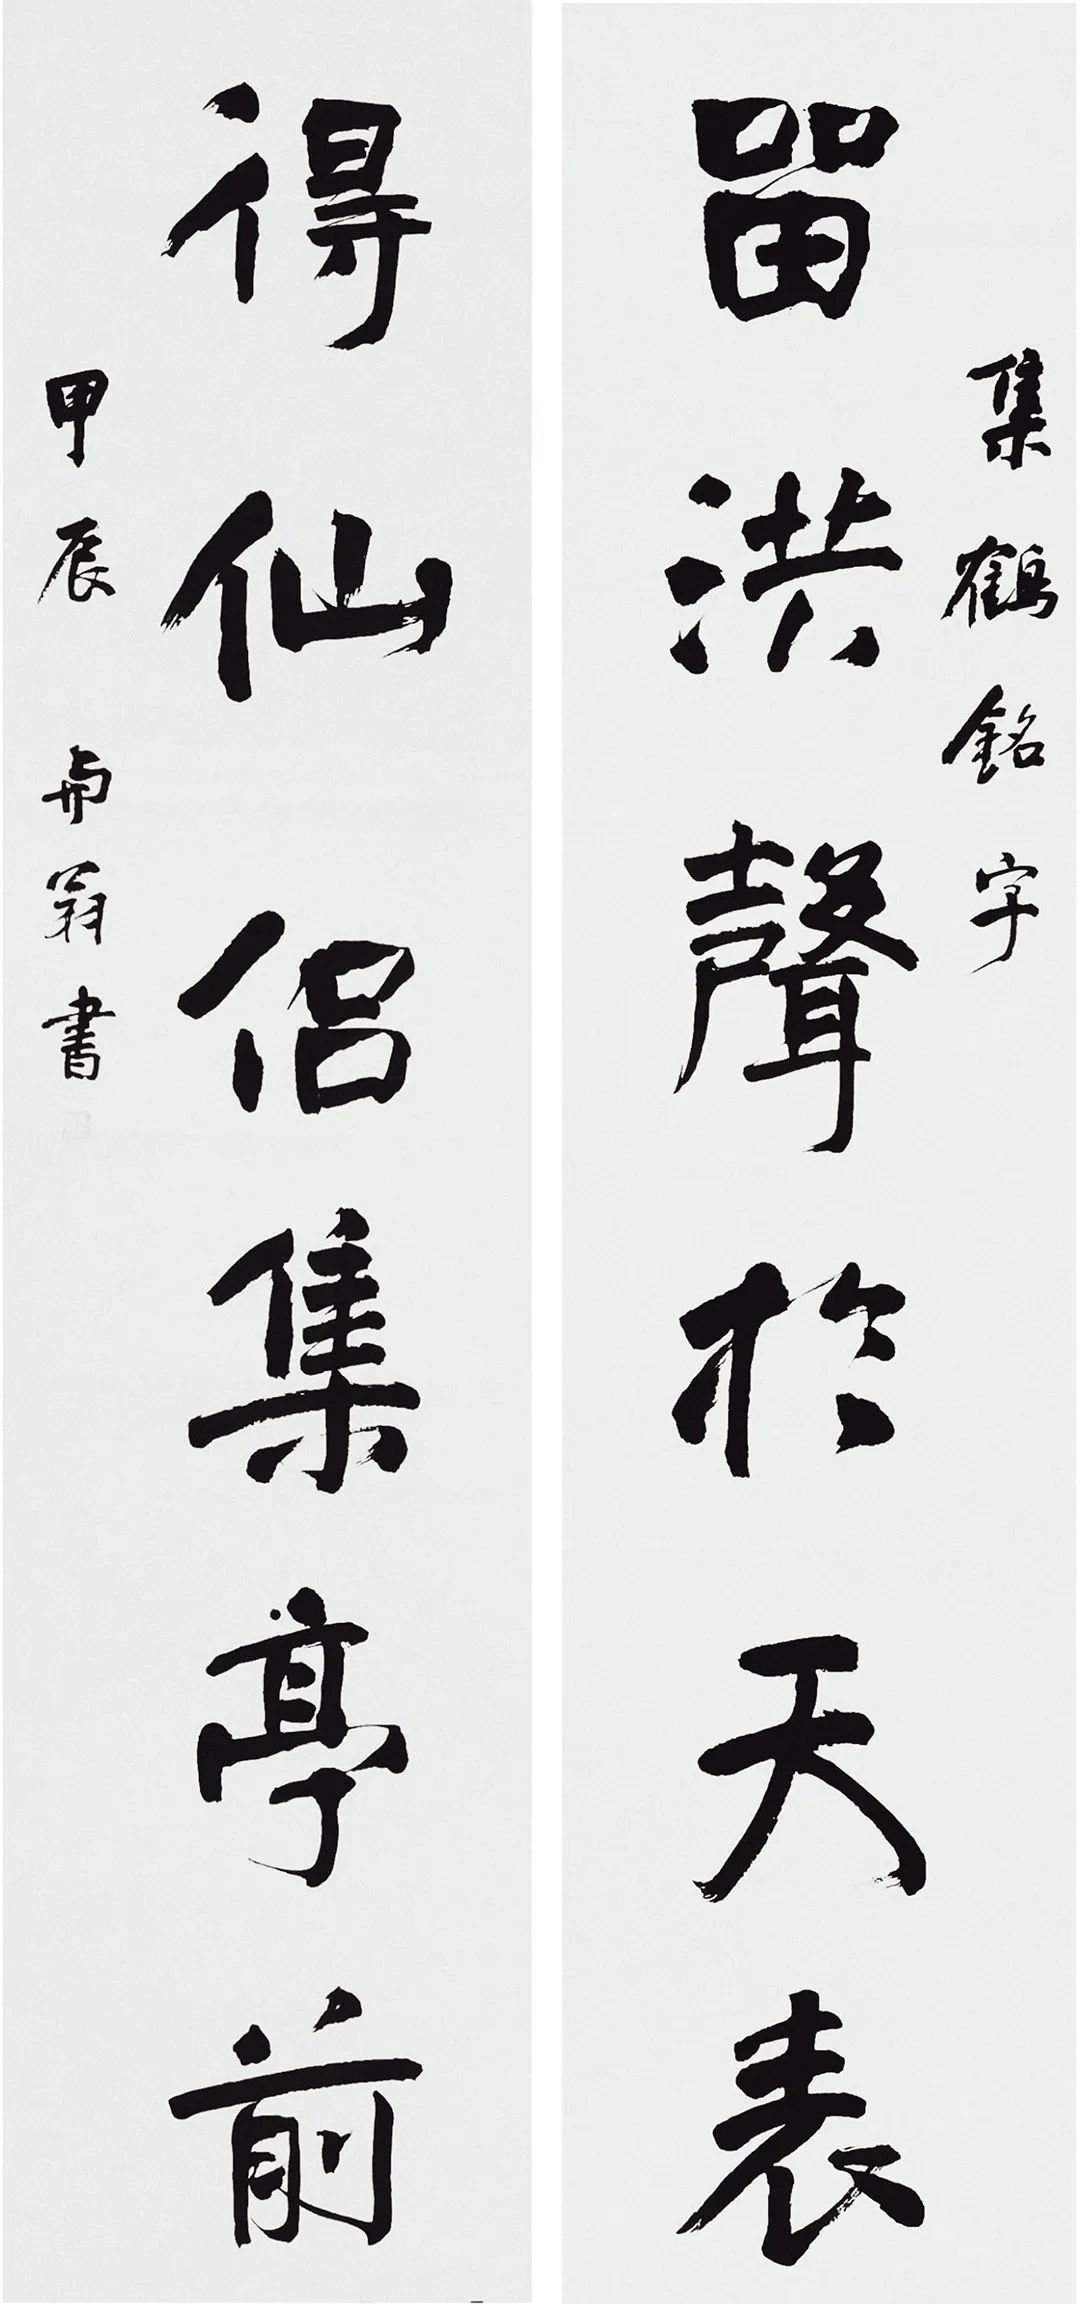 留洪聲於天表
集鶴銘字
得仙侣集亭前
甲辰 翁書